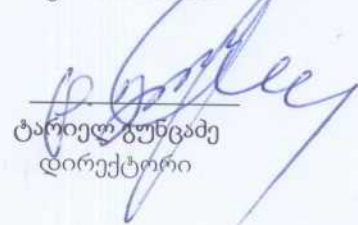 ტარიელ გუნცაძე
დირექტორი